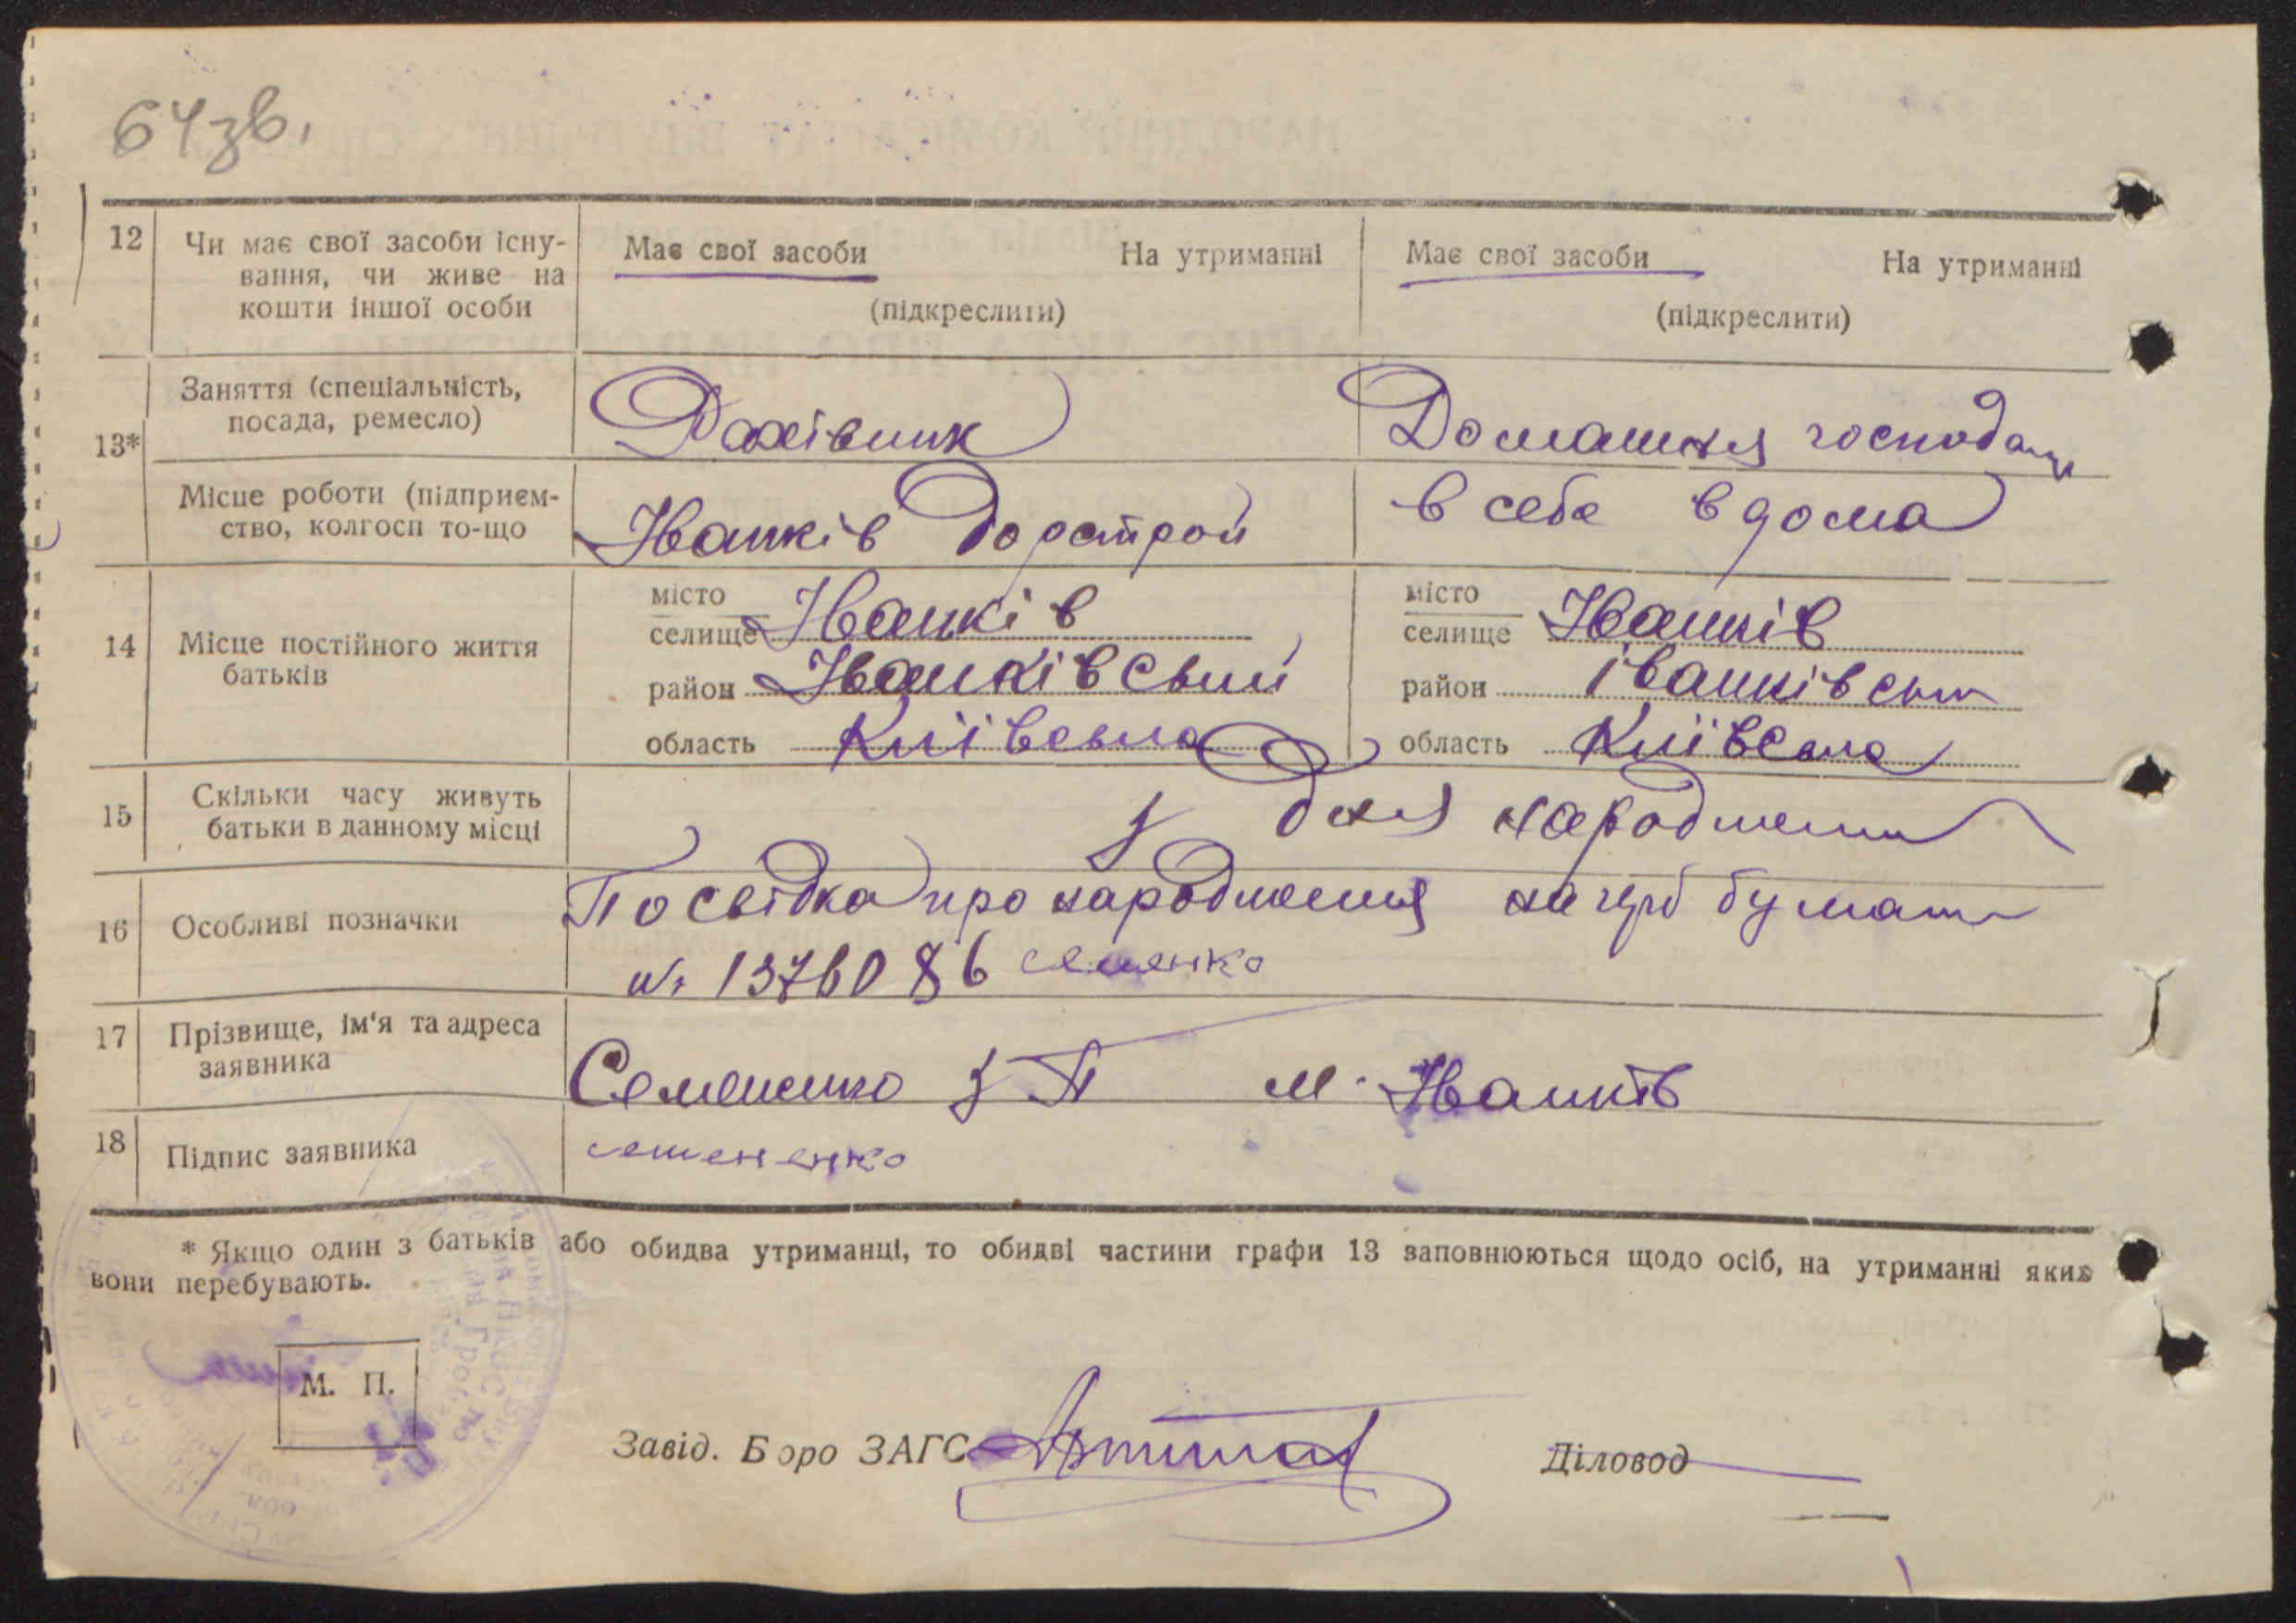 64зв.
12 Чи має свої засоби існу-
вання, чи живе на
кошти іншої особи
Має свої засоби На утриманні
(підкреслити)
Має свої засоби На утриманні
(підкреслити)
13*
Заняття (спеціальність,
посада, ремесло)
Рахівник
Домашня господар
Місце роботи (підприєм-
ство, колгосп то-що
Іванків Дорстрой
в себе вдома
14 Місце постійного життя
батьків
місто
селище Іванків
район Іванківський
область Київська
місто
селище Іванків
район Іванківськ
область Київська
15 Скільки часу живуть
батьки в данному місці
з дня народження
16 Особливі позначки
Посвідка про народження на герб бумаги
№ 1376086 семенко
17 Прізвище, ім‘я та адреса
заявника
Семененко З П м. Іванків
18 Підпис заявника
семененко
* Якщо один з батьків або обидва утриманці, то обидві частини графи 13 заповнюються щодо осіб, на утриманні яких
вони перебувають.
М. П.
Завід. Бюро ЗАГС
Діловод